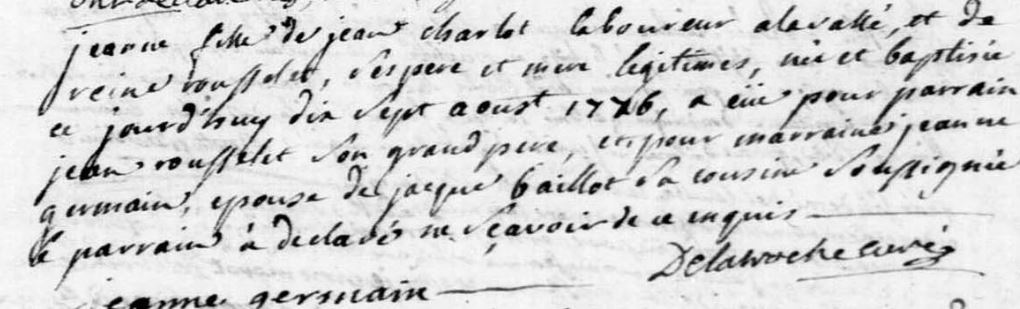 jeanne fille de jean charlot laboureur alavallé, et de
reine rousselet, ses pere et mere legitimes, née et baptisée
ce jourd'huy dix sept aoust 1776, a eüe pour parrain
jean rousselet son grand pere, et pour marraine jeanne
germain, epouse de jacque baillot sa cousine soussignée
le parrain à declaré ne sçavoir de ce enquis
Delaroche curé
jeanne germain